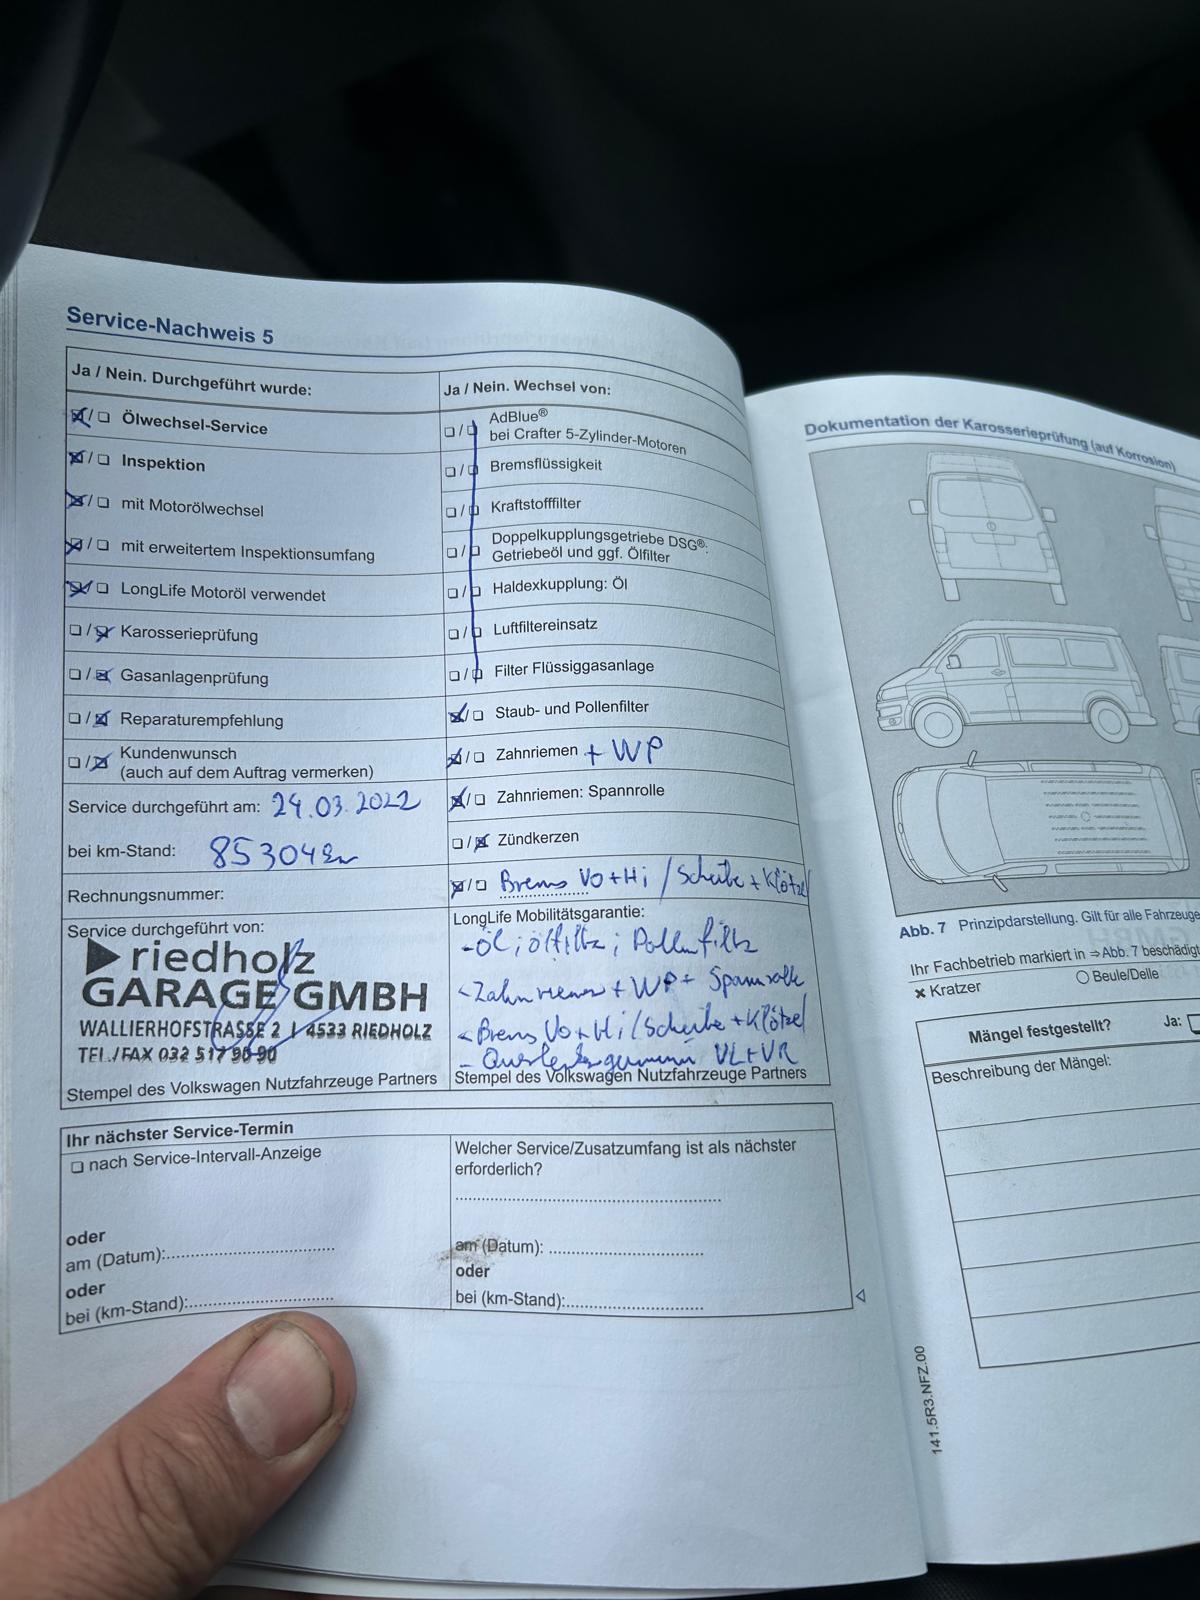 Service-Nachweis 5
Ja / Nein. Durchgeführt wurde:
☒/☐ Ölwechsel-Service
☒/☐ Inspektion
☒/☐ mit Motorölwechsel
☒/☐ mit erweitertem Inspektionsumfang
☒/☐ LongLife Motoröl verwendet
☐/☒ Karosserieprüfung
☐/☒ Gasanlagenprüfung
☐/☒ Reparaturempfehlung
☐/☒ Kundenwunsch
(auch auf dem Auftrag vermerken)
Service durchgeführt am: 24.03.2022
bei km-Stand: 85304 km
Rechnungsnummer:
Service durchgeführt von:
riedholz
GARAGE GMBH
WALLIERHOFSTRASSE 2 | 4533 RIEDHOLZ
TEL./FAX 032 517 90 90
Stempel des Volkswagen Nutzfahrzeuge Partners
Ja / Nein. Wechsel von:
☐/☐ AdBlue®
bei Crafter 5-Zylinder-Motoren
☐/☐ Bremsflüssigkeit
☐/☐ Kraftstofffilter
☐/☐ Doppelkupplungsgetriebe DSG®:
Getriebeöl und ggf. Ölfilter
☐/☐ Haldexkupplung: Öl
☐/☐ Luftfiltereinsatz
☐/☐ Filter Flüssiggasanlage
☒/☐ Staub- und Pollenfilter
☒/☐ Zahnriemen + WP
☒/☐ Zahnriemen: Spannrolle
☐/☒ Zündkerzen
☒/☐ Brems Vo+Hi / Scheibe + Klötze
LongLife Mobilitätsgarantie:
- Öl; ölfilter; Pollenfilter
- Zahnriemen + WP + Spannrolle
- Brems Vo+Hi / Scheibe + Klötze
- Querlenkergummi VL+VR
Stempel des Volkswagen Nutzfahrzeuge Partners
Ihr nächster Service-Termin
☐ nach Service-Intervall-Anzeige
oder
am (Datum):
oder
bei (km-Stand):
Welcher Service/Zusatzumfang ist als nächster
erforderlich?
am (Datum):
oder
bei (km-Stand):
Dokumentation der Karosserieprüfung (auf Korrosion)
Abb. 7 Prinzipdarstellung. Gilt für alle Fahrzeuge
Ihr Fachbetrieb markiert in ⇒ Abb. 7 beschädigt
× Kratzer
○ Beule/Delle
Mängel festgestellt?
Ja:
Beschreibung der Mängel:
141.5R3.NFZ.00